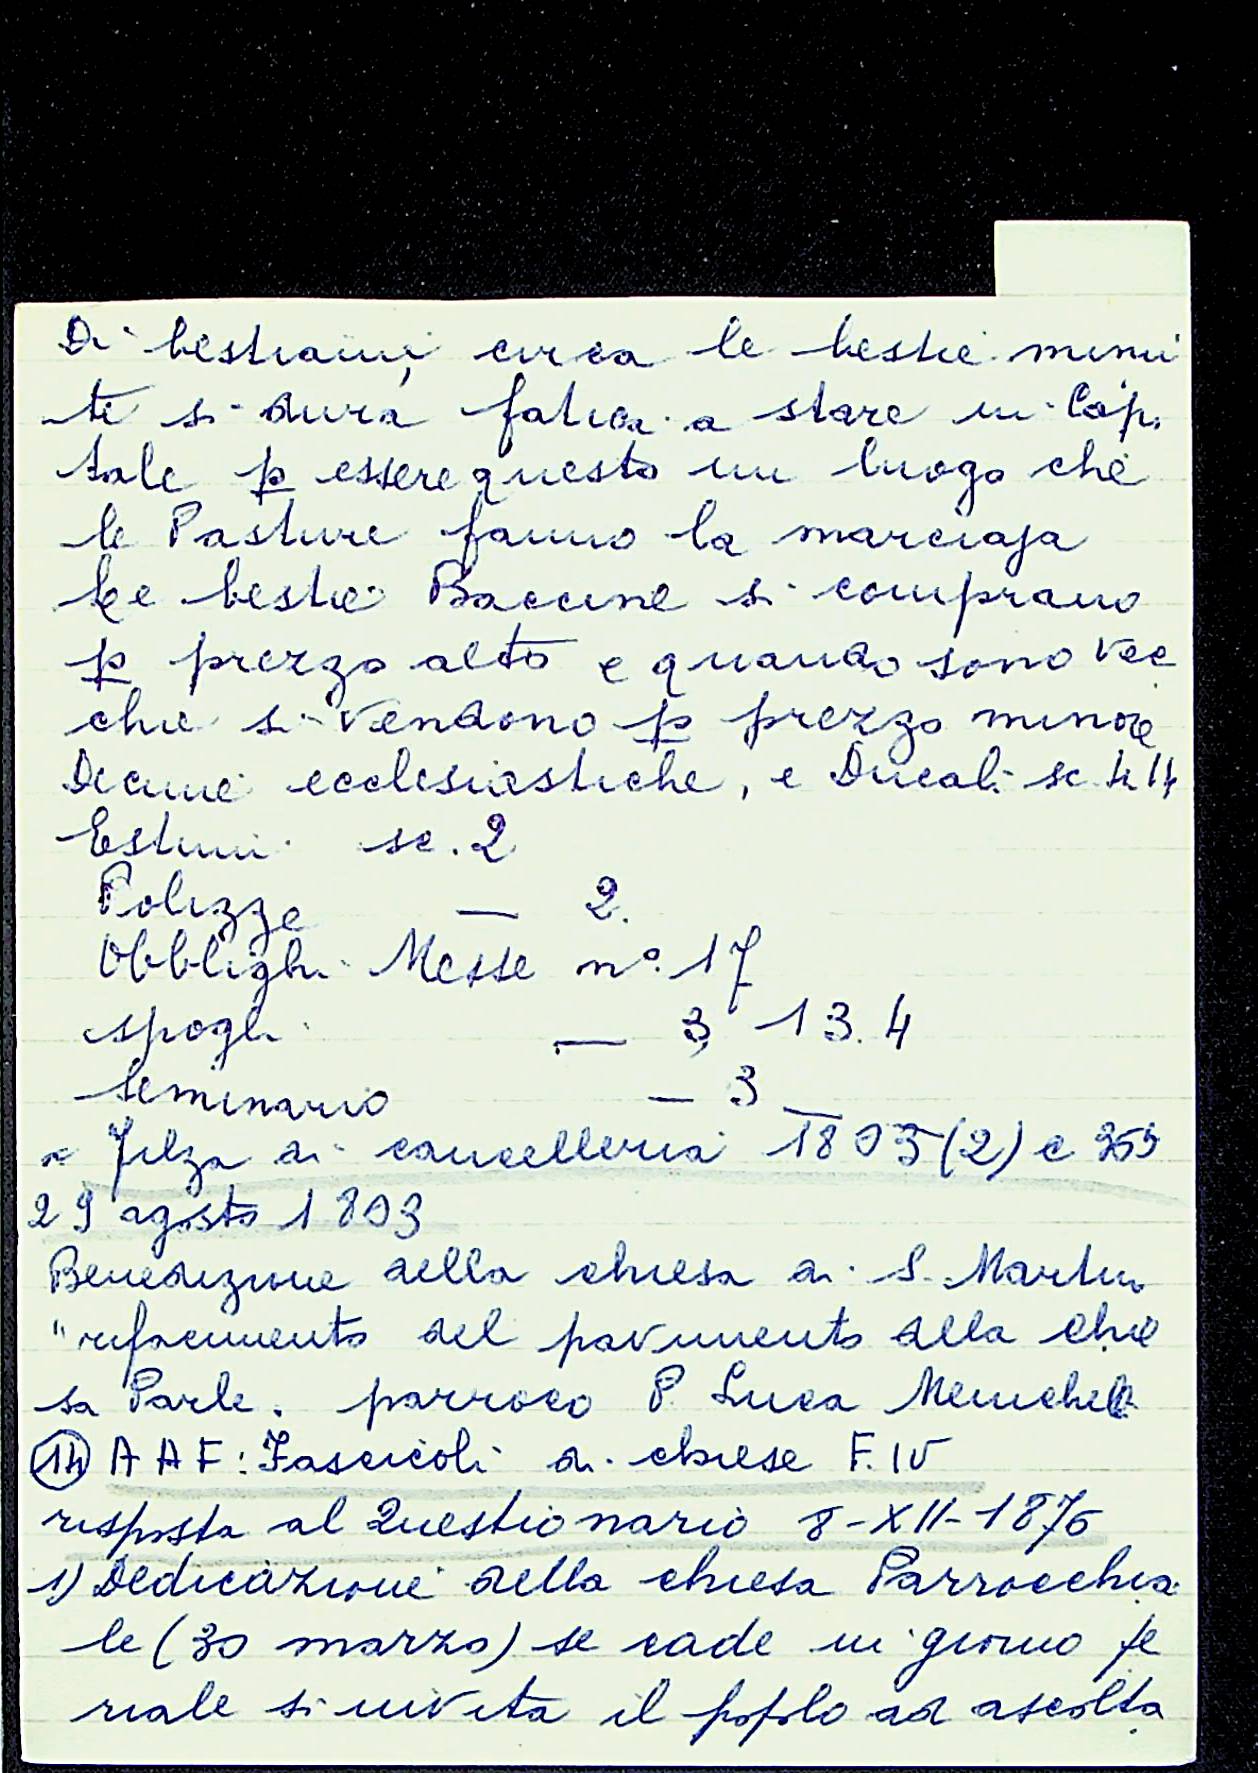 Di bestiami, circa le bestie minu
ti si dura fatica a stare in Capi
tale p essere questo un luogo che
le Pasture fanno la marciaja
Le bestie Baccine si comprano
p prezzo alto e quando sono vec
chie si vendono p prezzo minore
Decime ecclesiastiche, e Ducali sc. 4 14
Estimi sc. 2
Polizze — 2.
Obblighi Messe n°. 17
spogli — 3 13. 4
Seminario — 3 —
Filza di cancelleria 1803 (2) c 259
29 agosto 1803
Benedizione della chiesa di S. Martino
"rifacimento del pavimento della chie
sa Parle. parroco P. Luca Menichel
(14) A A F: Fascicoli di chiese F. IV
risposta al Questionario 8-XII-1876
1) Dedicazione della chiesa Parrocchia
le (30 marzo) se cade in giorno fe
riale si invita il popolo ad ascolta